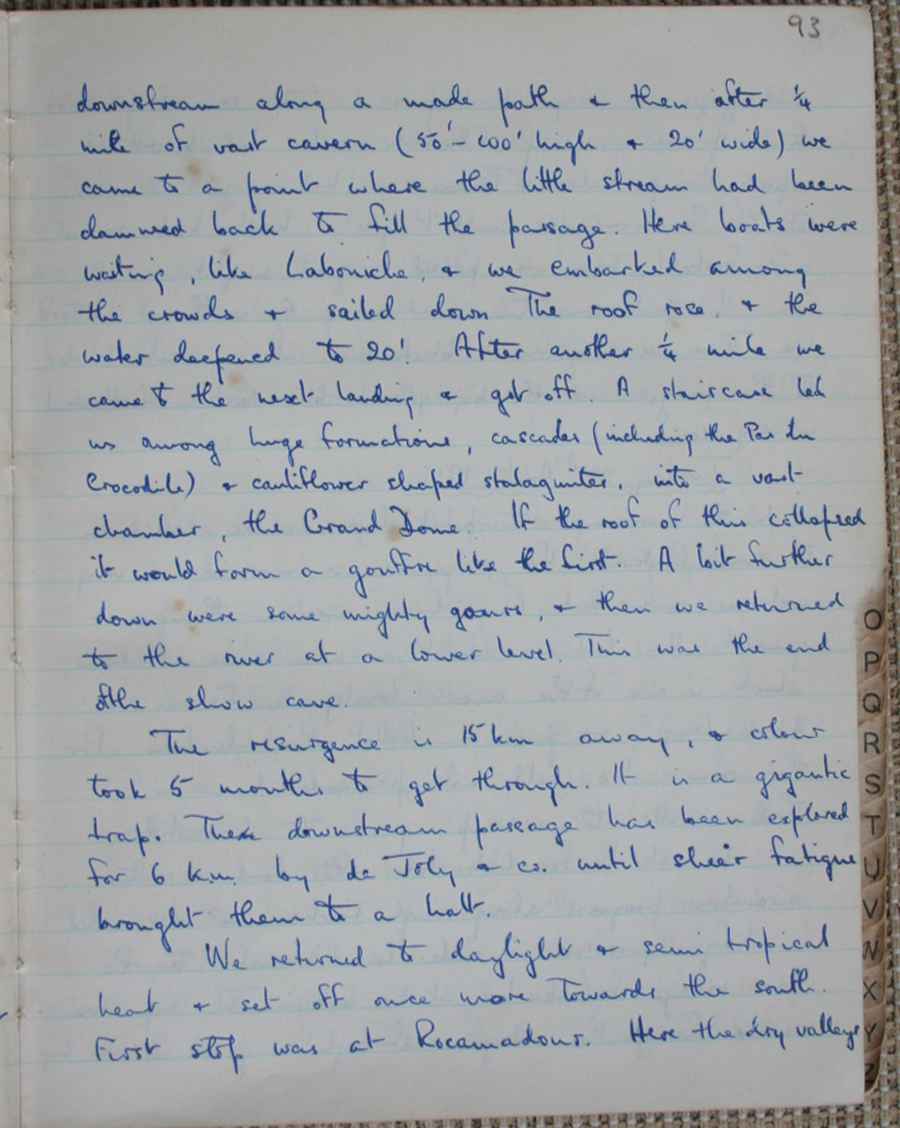 93
downstream along a made path & then after ¼
mile of vast cavern (50'-100' high & 20' wide) we
came to a point where the little stream had been
dammed back to fill the passage. Here boats were
waiting, like Labouiche, & we embarked among
the crowds & sailed down The roof rose, & the
water deepened to 20! After another ¼ mile we
came to the next landing & got off. A staircase led
us among huge formations, cascades (including the Pas du
Crocodile) & cauliflower shaped stalagmites, into a vast
chamber, the Grand Dome. If the roof of this collapsed
it would form a gouffre like the first. A bit further
down were some mighty gours, & then we returned
to the river at a lower level. This was the end
of the show cave.
The resurgence is 15 km away, & colour
took 5 months to get through. It is a gigantic
trap. The downstream passage has been explored
for 6 k.m. by de Joly & co. until sheer fatigue
brought them to a halt.
We returned to daylight & semi tropical
heat & set off once more towards the south.
First stop was at Rocamadour. Here the dry valleys
O
P
Q
R
S
T
U
V
W
X
Y
Z